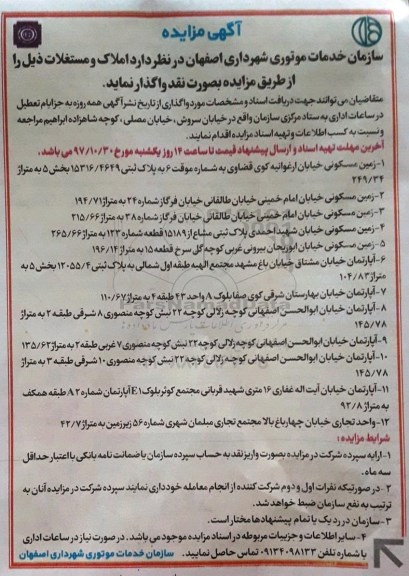 آگهی مزایده
سازمان خدمات موتوری شهرداری اصفهان در نظر دارد املاک و مستغلات ذیل را
از طریق مزایده بصورت نقد واگذار نماید.
متقاضیان می توانند جهت دریافت اسناد و مشخصات مورد واگذاری از تاریخ نشر آگهی همه روزه به جز ایام تعطیل
در ساعات اداری به ستاد مرکزی سازمان واقع در خیابان سروش ، خیابان مصلی ، کوچه شاهزاده ابراهیم مراجعه
و نسبت به کسب اطلاعات و تهیه اسناد مزایده اقدام نمایند.
آخرین مهلت تهیه اسناد و ارسال پیشنهاد قیمت تا ساعت ۱۴ روز یکشنبه مورخ ۹۷/۱۰/۳۰ می باشد.
۱-زمین مسکونی خیابان ارغوانیه کوی قضاوی به شماره موقت ۶ به پلاک ثبتی ۱۵۳۱۶/۴۶۴۹ بخش ۵ به متراژ
۲۴۹/۳۴
۲-زمین مسکونی خیابان امام خمینی خیابان طالقانی خیابان فرگاز شماره ۲۴ به متراژ ۱۹۴/۷۱
۳-زمین مسکونی خیابان امام خمینی خیابان طالقانی خیابان فرگاز شماره ۳۸ به متراژ ۲۱۵/۶۶
۴-زمین مسکونی خیابان شهید احمدی پلاک ثبتی مشاع از ۱۵۱۸۹ قطعه شماره ۱۲۳ به متراژ ۲۶۵/۶۶
۵-زمین مسکونی خیابان ابوریحان بیرونی غربی کوچه گل سرخ قطعه ۱۵ به متراژ ۱۹۶/۱۴
۶-آپارتمان خیابان مشتاق خیابان باغ مشهد مجتمع الهیه طبقه اول شمالی به پلاک ثبتی ۱۳۰۵۵/۴ بخش ۵ به
متراژ ۱۰۴/۸۳
۷-آپارتمان خیابان بهارستان شرقی کوی صفا بلوک ۸ واحد ۴۳ طبقه ۴ به متراژ ۱۱۰/۶۷
۸-آپارتمان خیابان ابوالحسن اصفهانی کوچه زلالی کوچه ۲۲ نبش کوچه منصوری ۸ شرقی طبقه ۲ به متراژ
۱۴۵/۷۸
۹-آپارتمان خیابان ابوالحسن اصفهانی کوچه زلالی کوچه ۲۲ نبش کوچه منصوری ۷ غربی طبقه ۲ به متراژ ۱۳۵/۶۲
۱۰-آپارتمان خیابان ابوالحسن اصفهانی کوچه زلالی کوچه ۲۲ نبش کوچه منصوری ۱۰ شرقی طبقه ۳ به متراژ
۱۴۵/۷۸
۱۱-آپارتمان خیابان آیت اله غفاری ۱۶ متری شهید قربانی مجتمع کوثر بلوک E1 آپارتمان شماره A2 طبقه همکف
به متراژ ۹۲/۸
۱۲-واحد تجاری خیابان چهارباغ بالا مجتمع تجاری مبلمان شهری شماره ۵۶ زیرزمین به متراژ ۴۲/۷
شرایط مزایده :
۱-ارایه سپرده شرکت در مزایده بصورت واریز نقد به حساب سپرده سازمان یا ضمانت نامه بانکی با اعتبار حداقل
سه ماه.
۲-در صورتیکه نفرات اول و دوم شرکت کننده از انجام معامله خودداری نمایند سپرده شرکت در مزایده آنان به
ترتیب به نفع سازمان ضبط خواهد شد.
۳-سازمان در رد یک یا تمام پیشنهادها مختار است.
۴-سایر اطلاعات و جزییات مربوطه در اسناد مزایده موجود می باشد . در صورت نیاز در ساعات اداری
با شماره تلفن ۰۹۱۳۴۰۹۸۱۳۳ تماس حاصل نمایید. سازمان خدمات موتوری شهرداری اصفهان